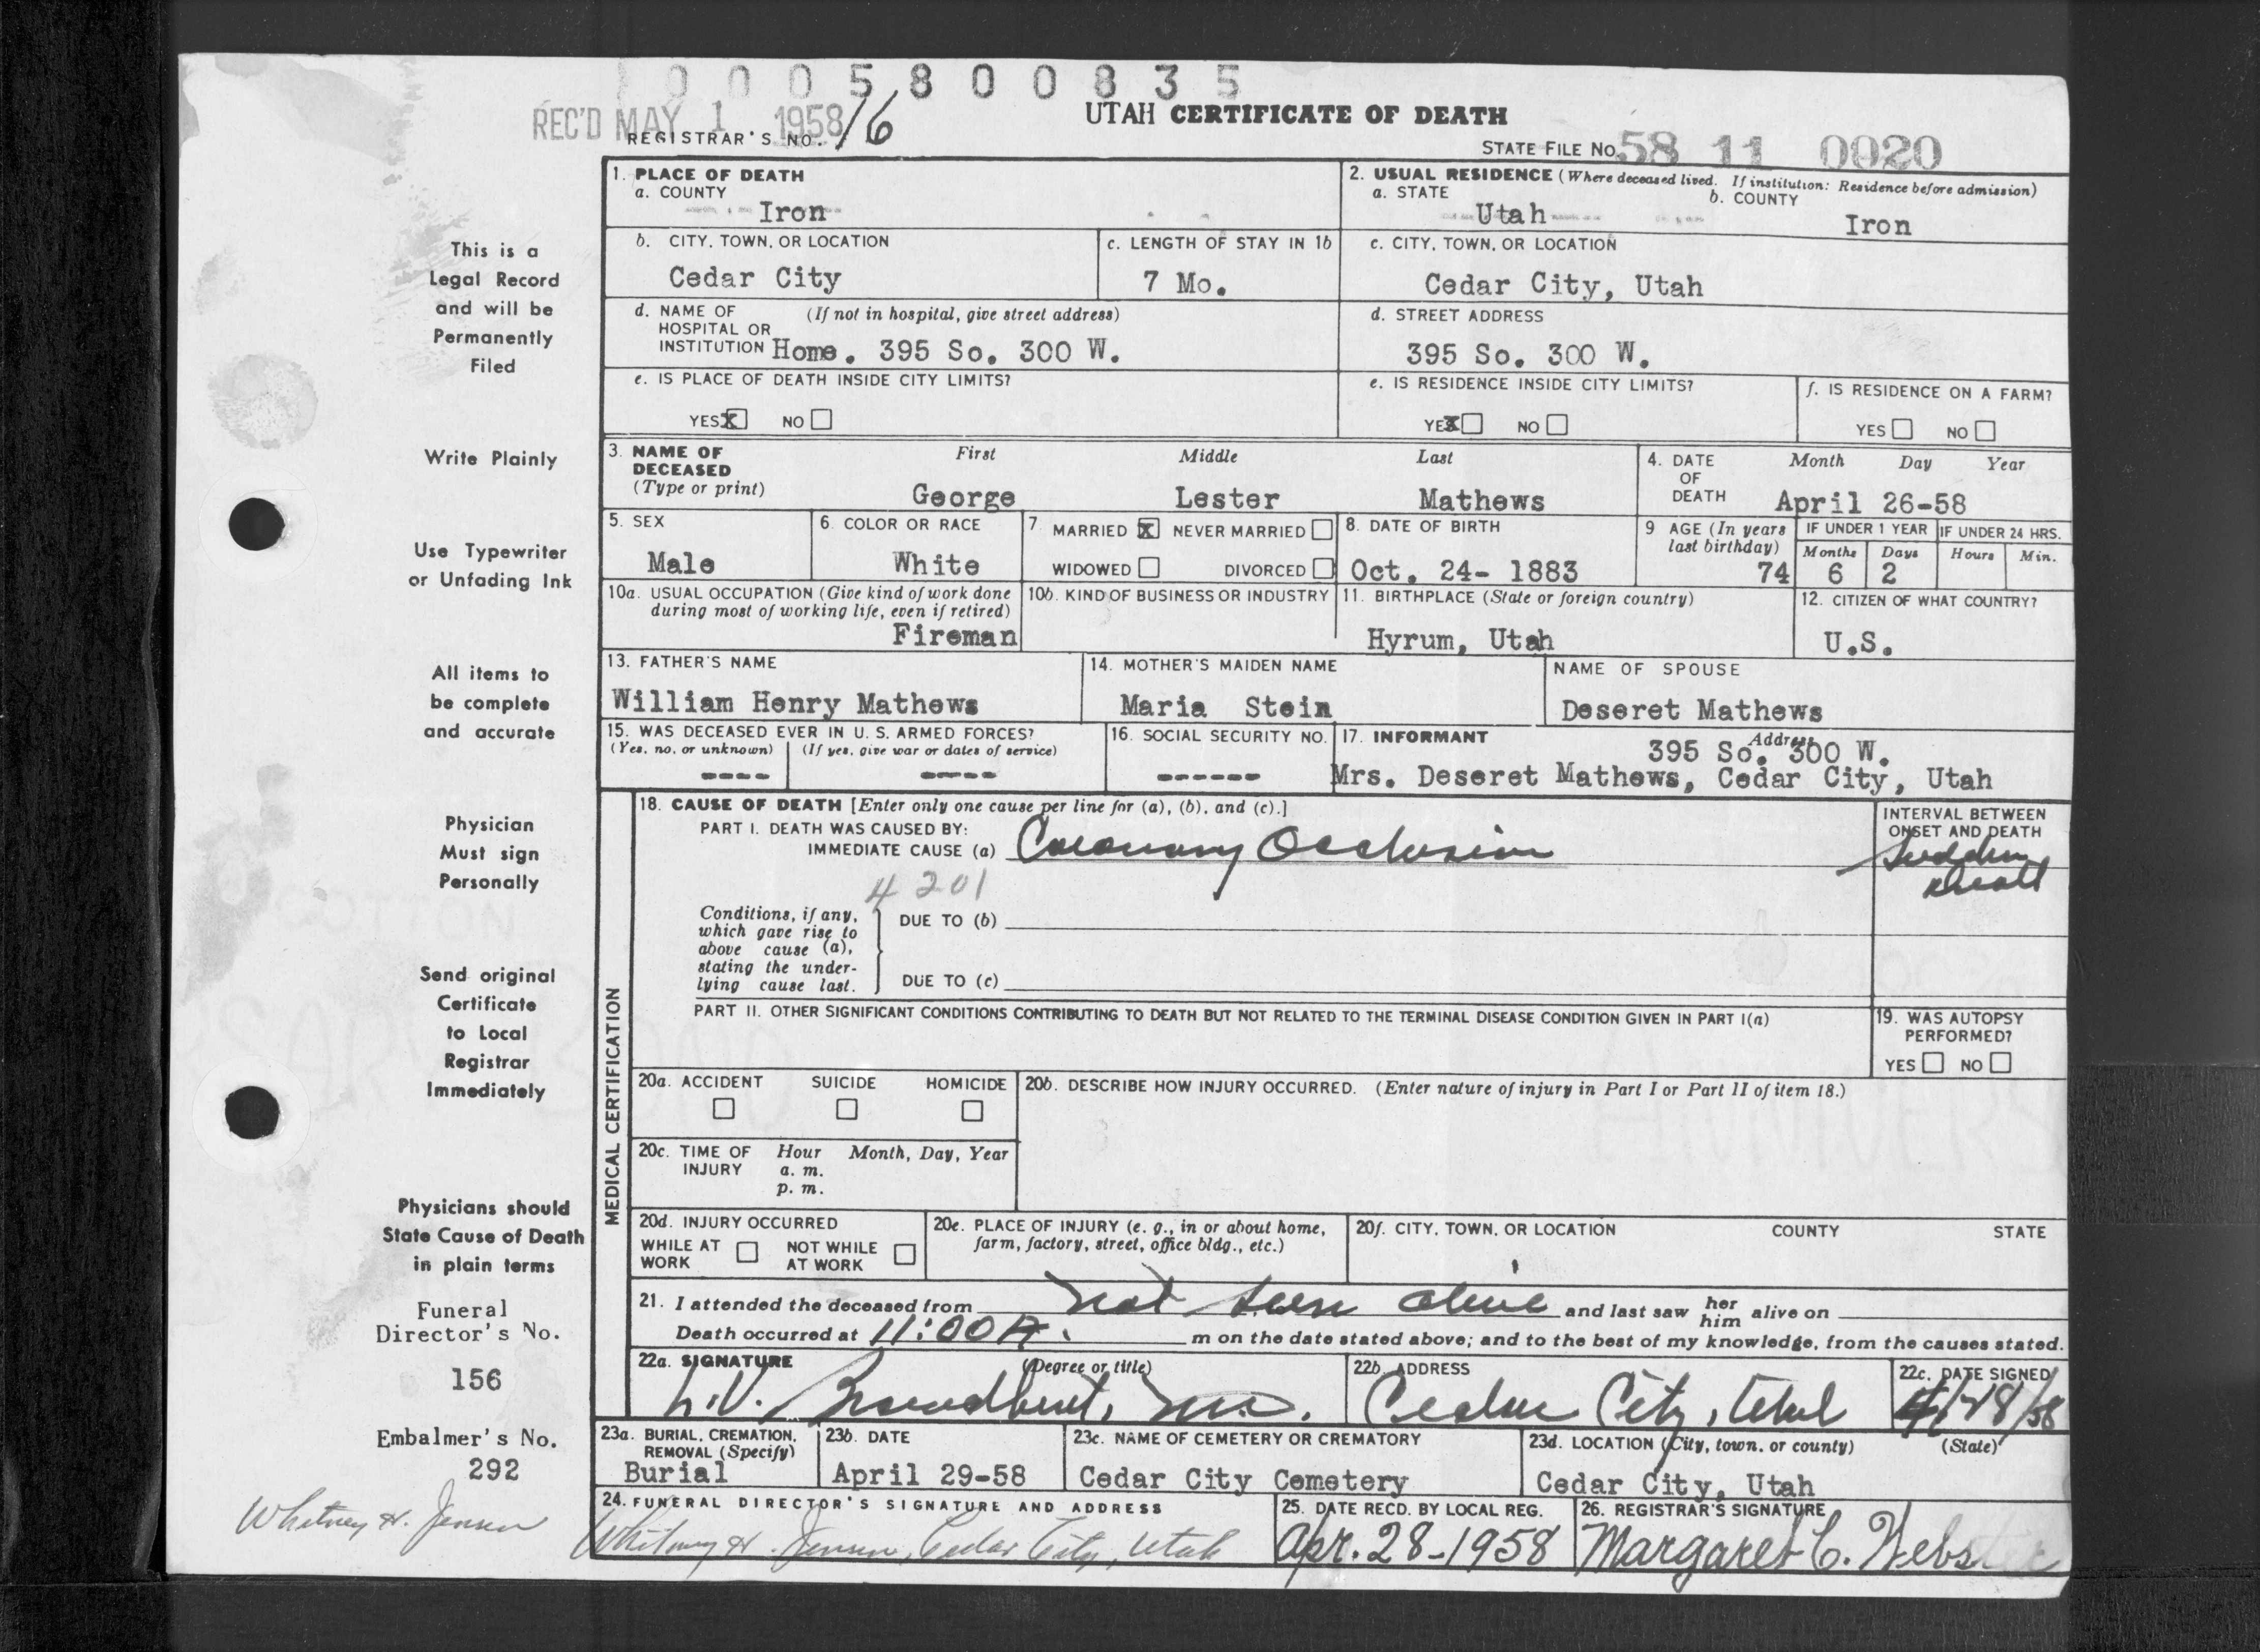 0005800835
REC'D MAY 1 1958
REGISTRAR'S NO. 16
UTAH CERTIFICATE OF DEATH
STATE FILE NO. 58 11 0020
This is a
Legal Record
and will be
Permanently
Filed
Write Plainly
Use Typewriter
or Unfading Ink
All items to
be complete
and accurate
Physician
Must sign
Personally
Send original
Certificate
to Local
Registrar
Immediately
Physicians should
State Cause of Death
in plain terms
Funeral
Director's No.
156
Embalmer's No.
292
Whitney H. Jensen
1. PLACE OF DEATH
a. COUNTY
Iron
2. USUAL RESIDENCE (Where deceased lived. If institution: Residence before admission)
a. STATE
Utah
b. COUNTY
Iron
b. CITY, TOWN, OR LOCATION
Cedar City
c. LENGTH OF STAY IN 1b
7 Mo.
c. CITY, TOWN, OR LOCATION
Cedar City, Utah
d. NAME OF (If not in hospital, give street address)
HOSPITAL OR
INSTITUTION Home. 395 So. 300 W.
d. STREET ADDRESS
395 So. 300 W.
e. IS PLACE OF DEATH INSIDE CITY LIMITS?
YES X NO
e. IS RESIDENCE INSIDE CITY LIMITS?
YES X NO
f. IS RESIDENCE ON A FARM?
YES NO
3. NAME OF
DECEASED
(Type or print)
First Middle Last
George Lester Mathews
4. DATE
OF
DEATH
Month Day Year
April 26-58
5. SEX
Male
6. COLOR OR RACE
White
7. MARRIED X NEVER MARRIED
WIDOWED DIVORCED
8. DATE OF BIRTH
Oct. 24- 1883
9 AGE (In years
last birthday)
74
IF UNDER 1 YEAR
Months Days
6 2
IF UNDER 24 HRS.
Hours Min.
10a. USUAL OCCUPATION (Give kind of work done
during most of working life, even if retired)
Fireman
10b. KIND OF BUSINESS OR INDUSTRY
11. BIRTHPLACE (State or foreign country)
Hyrum, Utah
12. CITIZEN OF WHAT COUNTRY?
U.S.
13. FATHER'S NAME
William Henry Mathews
14. MOTHER'S MAIDEN NAME
Maria Stein
NAME OF SPOUSE
Deseret Mathews
15. WAS DECEASED EVER IN U. S. ARMED FORCES?
(Yes, no, or unknown) (If yes, give war or dates of service)
---- ----
16. SOCIAL SECURITY NO.
------
17. INFORMANT
Address
395 So. 300 W.
Mrs. Deseret Mathews, Cedar City, Utah
MEDICAL CERTIFICATION
18. CAUSE OF DEATH [Enter only one cause per line for (a), (b), and (c).]
PART I. DEATH WAS CAUSED BY:
IMMEDIATE CAUSE (a) Coronary Occlusion
4201
INTERVAL BETWEEN
ONSET AND DEATH
Sudden
death
Conditions, if any,
which gave rise to
above cause (a),
stating the under-
lying cause last.
DUE TO (b)
DUE TO (c)
PART II. OTHER SIGNIFICANT CONDITIONS CONTRIBUTING TO DEATH BUT NOT RELATED TO THE TERMINAL DISEASE CONDITION GIVEN IN PART I(a)
19. WAS AUTOPSY
PERFORMED?
YES NO
20a. ACCIDENT SUICIDE HOMICIDE
20b. DESCRIBE HOW INJURY OCCURRED. (Enter nature of injury in Part I or Part II of item 18.)
20c. TIME OF
INJURY
Hour Month, Day, Year
a. m.
p. m.
20d. INJURY OCCURRED
WHILE AT
WORK
NOT WHILE
AT WORK
20e. PLACE OF INJURY (e. g., in or about home,
farm, factory, street, office bldg., etc.)
20f. CITY, TOWN, OR LOCATION COUNTY STATE
21. I attended the deceased from not seen alive and last saw her him alive on
Death occurred at 11:00 A. m on the date stated above; and to the best of my knowledge, from the causes stated.
22a. SIGNATURE (Degree or title)
L.V. Broadbent, M.D.
22b. ADDRESS
Cedar City, Utah
22c. DATE SIGNED
4/28/58
23a. BURIAL, CREMATION,
REMOVAL (Specify)
Burial
23b. DATE
April 29-58
23c. NAME OF CEMETERY OR CREMATORY
Cedar City Cemetery
23d. LOCATION (City, town, or county) (State)
Cedar City, Utah
24. FUNERAL DIRECTOR'S SIGNATURE AND ADDRESS
Whitney H. Jensen, Cedar City, Utah
25. DATE RECD. BY LOCAL REG.
Apr. 28-1958
26. REGISTRAR'S SIGNATURE
Margaret C. Webster